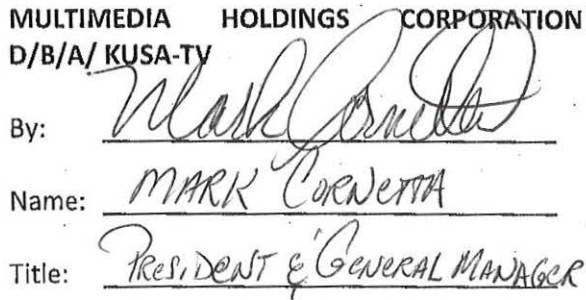 MULTIMEDIA HOLDINGS CORPORATION
D/B/A/ KUSA-TV
By: Mark Cornetta
Name: MARK CORNETTA
Title: PRESIDENT & GENERAL MANAGER